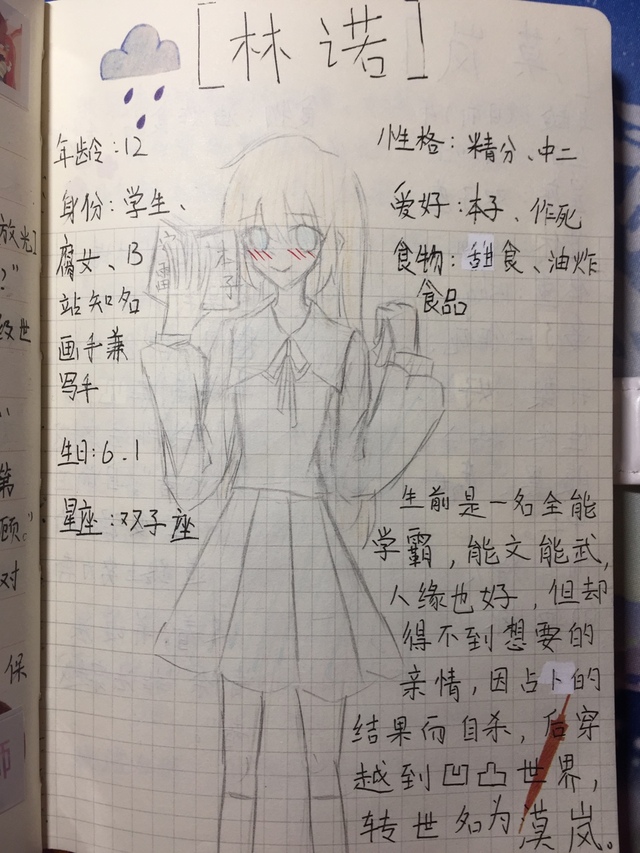 [林诺]
年龄:12
身份:学生、
腐女、B
站知名
画手兼
写手
生日:6.1
星座:双子座
性格:精分、中二
爱好:本子、作死
食物:甜食、油炸
食品
本子
生前是一名全能
学霸,能文能武,
人缘也好,但却
得不到想要的
亲情,因占卜的
结果而自杀,后穿
越到凹凸世界,
转世名为漠岚。
放光]
?"
级世
第
顾。"
对
保
师